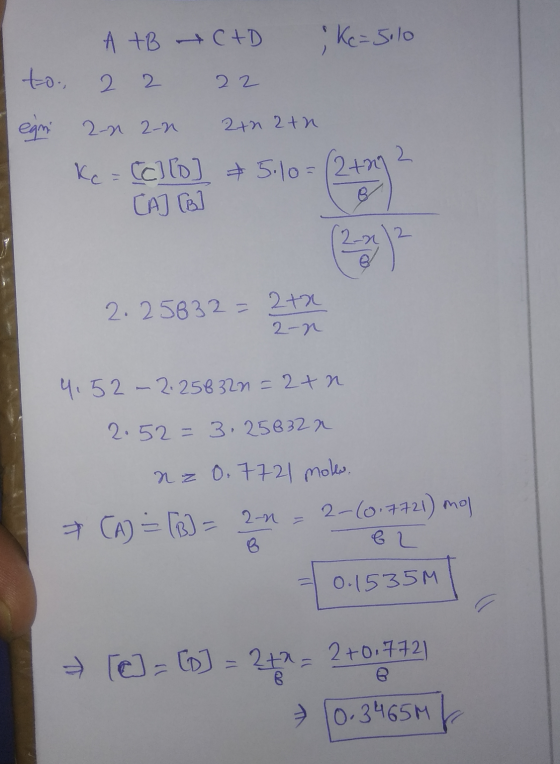 A + B → C + D ; Kc = 5.10
t=0., 2 2 2 2
eqm 2-x 2-x 2+x 2+x
Kc = [C][D] / [A][B] ⇒ 5.10 = ((2+x)/8)² / ((2-x)/8)²
2.25832 = (2+x)/(2-x)
4.52 - 2.25832x = 2 + x
2.52 = 3.25832x
x = 0.7721 moles.
⇒ [A] = [B] = (2-x)/8 = (2-(0.7721) mol)/(8 L)
= 0.1535M
⇒ [C] = [D] = (2+x)/8 = (2+0.7721)/8
⇒ 0.3465M